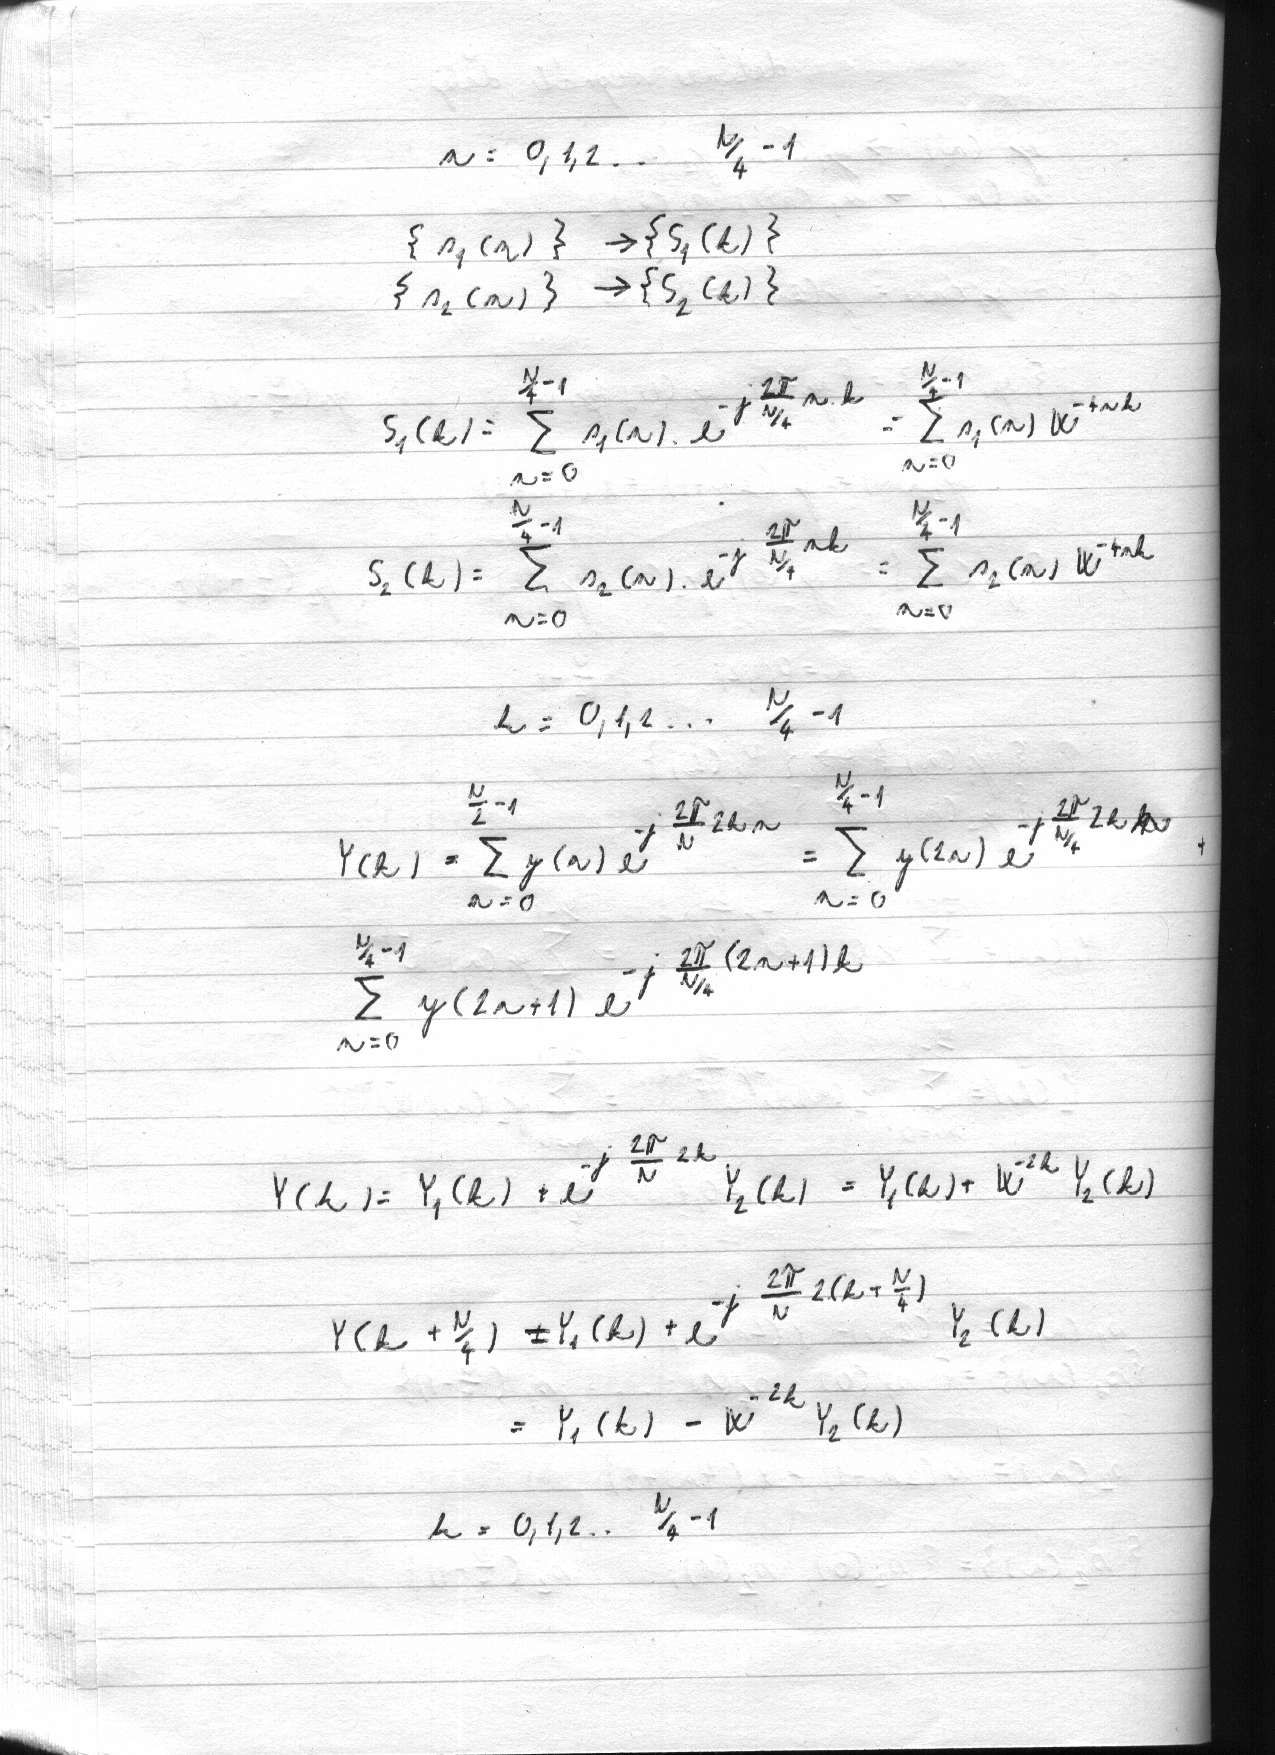 n = 0,1,2.. N/4 -1
{ s₁(n) } → { S₁(k) }
{ s₂(n) } → { S₂(k) }
S₁(k) = ∑_{n=0}^{N/4 -1} s₁(n) . e^{-j 2π/(N/4) n.k} = ∑_{n=0}^{N/4 -1} s₁(n) W^{-4nk}
S₂(k) = ∑_{n=0}^{N/4 -1} s₂(n) . e^{-j 2π/(N/4) nk} = ∑_{n=0}^{N/4 -1} s₂(n) W^{-4nk}
k = 0,1,2... N/4 -1
Y(k) = ∑_{n=0}^{N/2 -1} y(n) e^{-j 2π/N 2kn} = ∑_{n=0}^{N/4 -1} y(2n) e^{-j 2π/(N/4) 2kn} +
∑_{n=0}^{N/4 -1} y(2n+1) e^{-j 2π/(N/4) (2n+1)k}
Y(k) = Y₁(k) + e^{-j 2π/N 2k} Y₂(k) = Y₁(k) + W^{-2k} Y₂(k)
Y(k + N/4) = Y₁(k) + e^{-j 2π/N 2(k + N/4)} Y₂(k)
= Y₁(k) - W^{-2k} Y₂(k)
k = 0,1,2.. N/4 -1